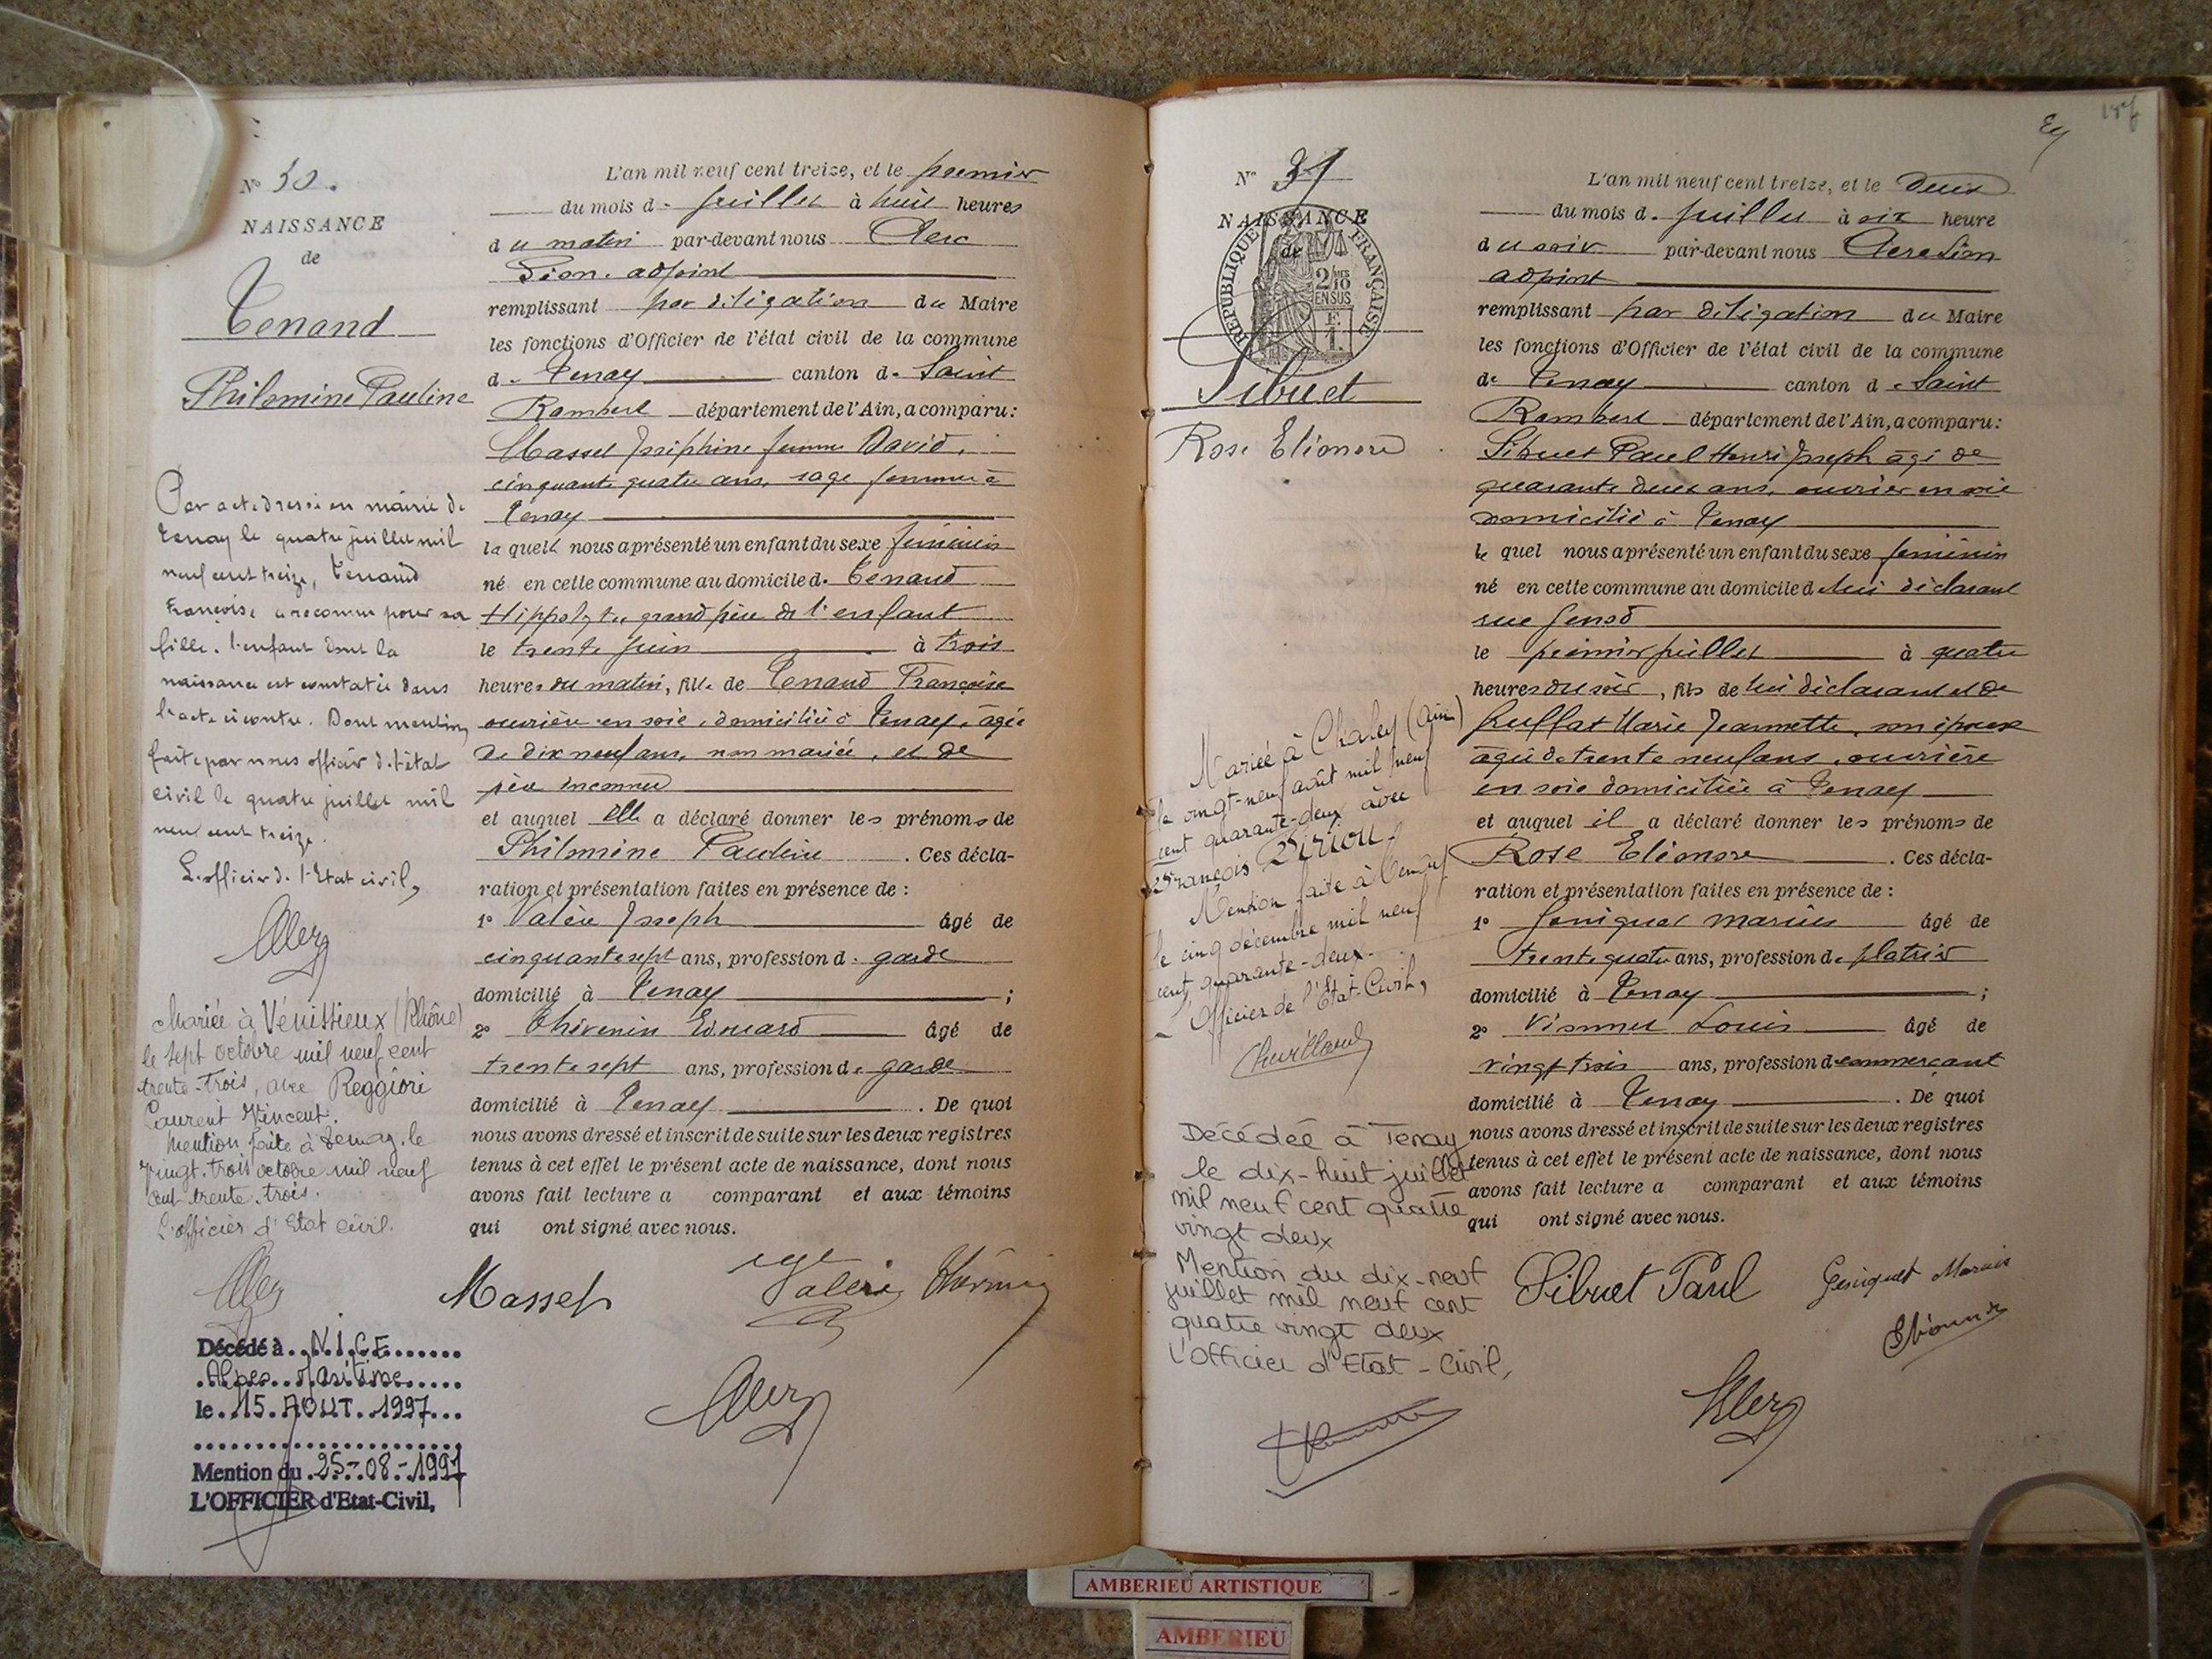 N° 30.
NAISSANCE
de
Tenand
Philomine Pauline
Par acte dressé en mairie de
Tenay le quatre juillet mil
neuf cent treize, Tenand
Françoise a reconnu pour sa
fille. l'enfant dont la
naissance est constatée dans
l'acte ci contre. Dont mention
faite par nous officier de l'état
civil le quatre juillet mil
neuf cent treize.
L'officier de l'Etat civil,
Mariée à Vénissieux (Rhône)
le sept octobre mil neuf cent
trente-trois, avec Reggiori
Laurent Vincent.
Mention faite à Tenay, le
vingt-trois octobre mil neuf
cent trente-trois.
L'officier d'Etat civil.
Décédé à NICE
Alpes Maritime
le 15 AOUT 1997
Mention du 25-08-1997
L'OFFICIER d'Etat-Civil,
L'an mil neuf cent treize, et le premier
du mois de juillet à huit heures
du matin par-devant nous Clerc
Simon, adjoint
remplissant par délégation du Maire
les fonctions d'Officier de l'état civil de la commune
de Tenay canton de Saint
Rambert département de l'Ain, a comparu:
Massel Joséphine femme David,
cinquante quatre ans, sage femme à
Tenay
la quelle nous a présenté un enfant du sexe féminin
né en cette commune au domicile de Tenand
Hippolyte, grand père de l'enfant
le trente juin à trois
heures du matin, fille de Tenand Françoise
ouvrière en soie, domiciliée à Tenay, âgée
de dix neuf ans, non mariée, et de
père inconnu
et auquel elle a déclaré donner les prénoms de
Philomine Pauline . Ces décla-
ration et présentation faites en présence de :
1° Valère Joseph âgé de
cinquante sept ans, profession de garde
domicilié à Tenay ;
2° Thévenin Edouard âgé de
trente sept ans, profession de garde
domicilié à Tenay . De quoi
nous avons dressé et inscrit de suite sur les deux registres
tenus à cet effet le présent acte de naissance, dont nous
avons fait lecture a comparant et aux témoins
qui ont signé avec nous.
Massel
Valère
N° 31
NAISSANCE
de
REPUBLIQUE FRANÇAISE
2/10
EN SUS
Sibuet
Rose Eléonore
Mariée à Chaley (Ain)
le vingt-neuf août mil neuf
cent quarante-deux avec
François
Mention faite à Tenay
le cinq décembre mil neuf
cent quarante-deux.
L'Officier de l'Etat-Civil,
Décédée à Tenay
le dix-huit juillet
mil neuf cent quatre
vingt deux
Mention du dix-neuf
juillet mil neuf cent
quatre vingt deux
L'officier d'Etat-Civil,
L'an mil neuf cent treize, et le deux
du mois de juillet à six heure
du soir par-devant nous Clerc Simon
adjoint
remplissant par délégation du Maire
les fonctions d'Officier de l'état civil de la commune
de Tenay canton de Saint
Rambert département de l'Ain, a comparu:
Sibuet Paul Henri Joseph âgé de
quarante deux ans, ouvrier en soie
domicilié à Tenay
le quel nous a présenté un enfant du sexe féminin
né en cette commune au domicile de lui déclarant
rue
le premier juillet à quatre
heures du soir, fils de lui déclarant et de
Marie Jeannette, son épouse
âgée de trente neuf ans, ouvrière
en soie domiciliée à Tenay
et auquel il a déclaré donner les prénoms de
Rose Eléonore . Ces décla-
ration et présentation faites en présence de :
1° Geniquet Marius âgé de
trente quatre ans, profession de platrier
domicilié à Tenay ;
2° Louis âgé de
vingt trois ans, profession de commerçant
domicilié à Tenay . De quoi
nous avons dressé et inscrit de suite sur les deux registres
tenus à cet effet le présent acte de naissance, dont nous
avons fait lecture a comparant et aux témoins
qui ont signé avec nous.
Sibuet Paul
Geniquet Marius
AMBERIEU ARTISTIQUE
AMBERIEU